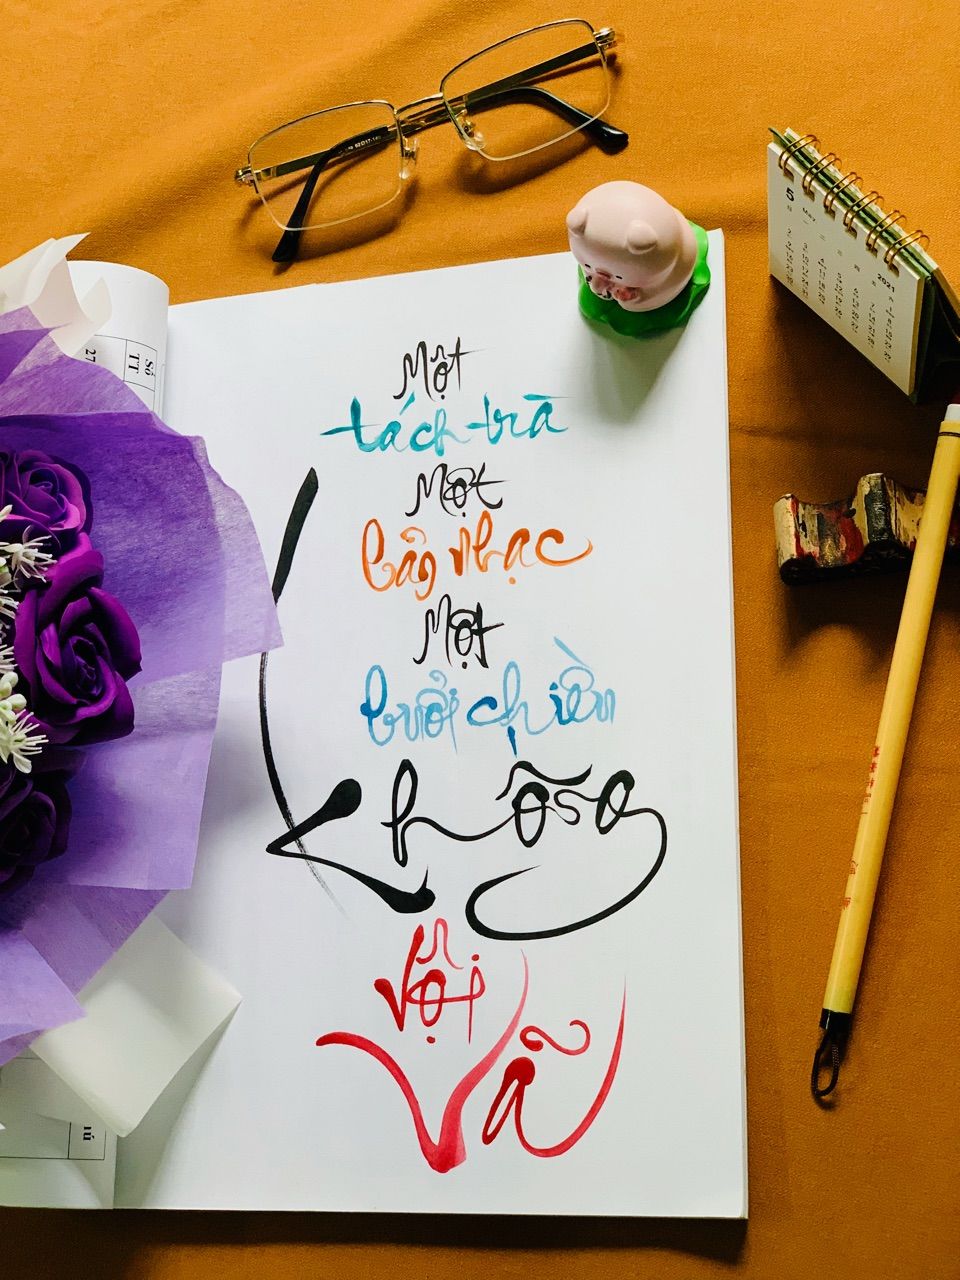 Một
tách trà
Một
bản nhạc
Một
buổi chiều
Không
Vội
Vã
5
May
2021
Số
TT
27